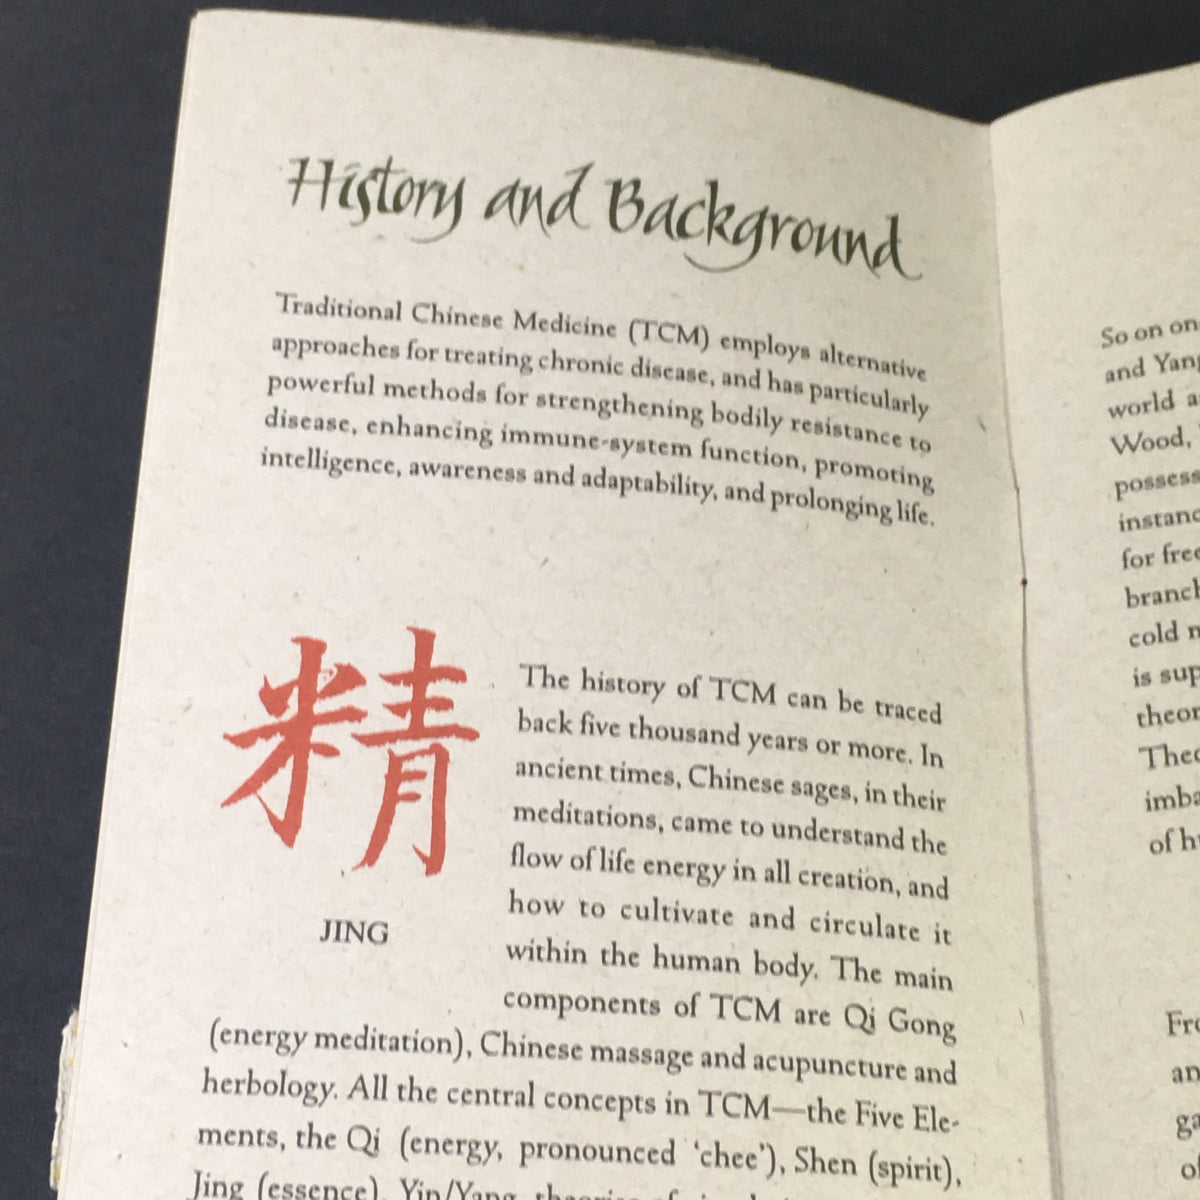 History and Background
Traditional Chinese Medicine (TCM) employs alternative
approaches for treating chronic disease, and has particularly
powerful methods for strengthening bodily resistance to
disease, enhancing immune-system function, promoting
intelligence, awareness and adaptability, and prolonging life.
精
JING
The history of TCM can be traced
back five thousand years or more. In
ancient times, Chinese sages, in their
meditations, came to understand the
flow of life energy in all creation, and
how to cultivate and circulate it
within the human body. The main
components of TCM are Qi Gong
(energy meditation), Chinese massage and acupuncture and
herbology. All the central concepts in TCM—the Five Ele-
ments, the Qi (energy, pronounced ‘chee’), Shen (spirit),
Jing (essence), Yin/Yang
So on on
and Yang
world
Wood,
possess
instanc
for free
branch
cold
is sup
theor
Theo
imba
of
Fro
an
ga
of